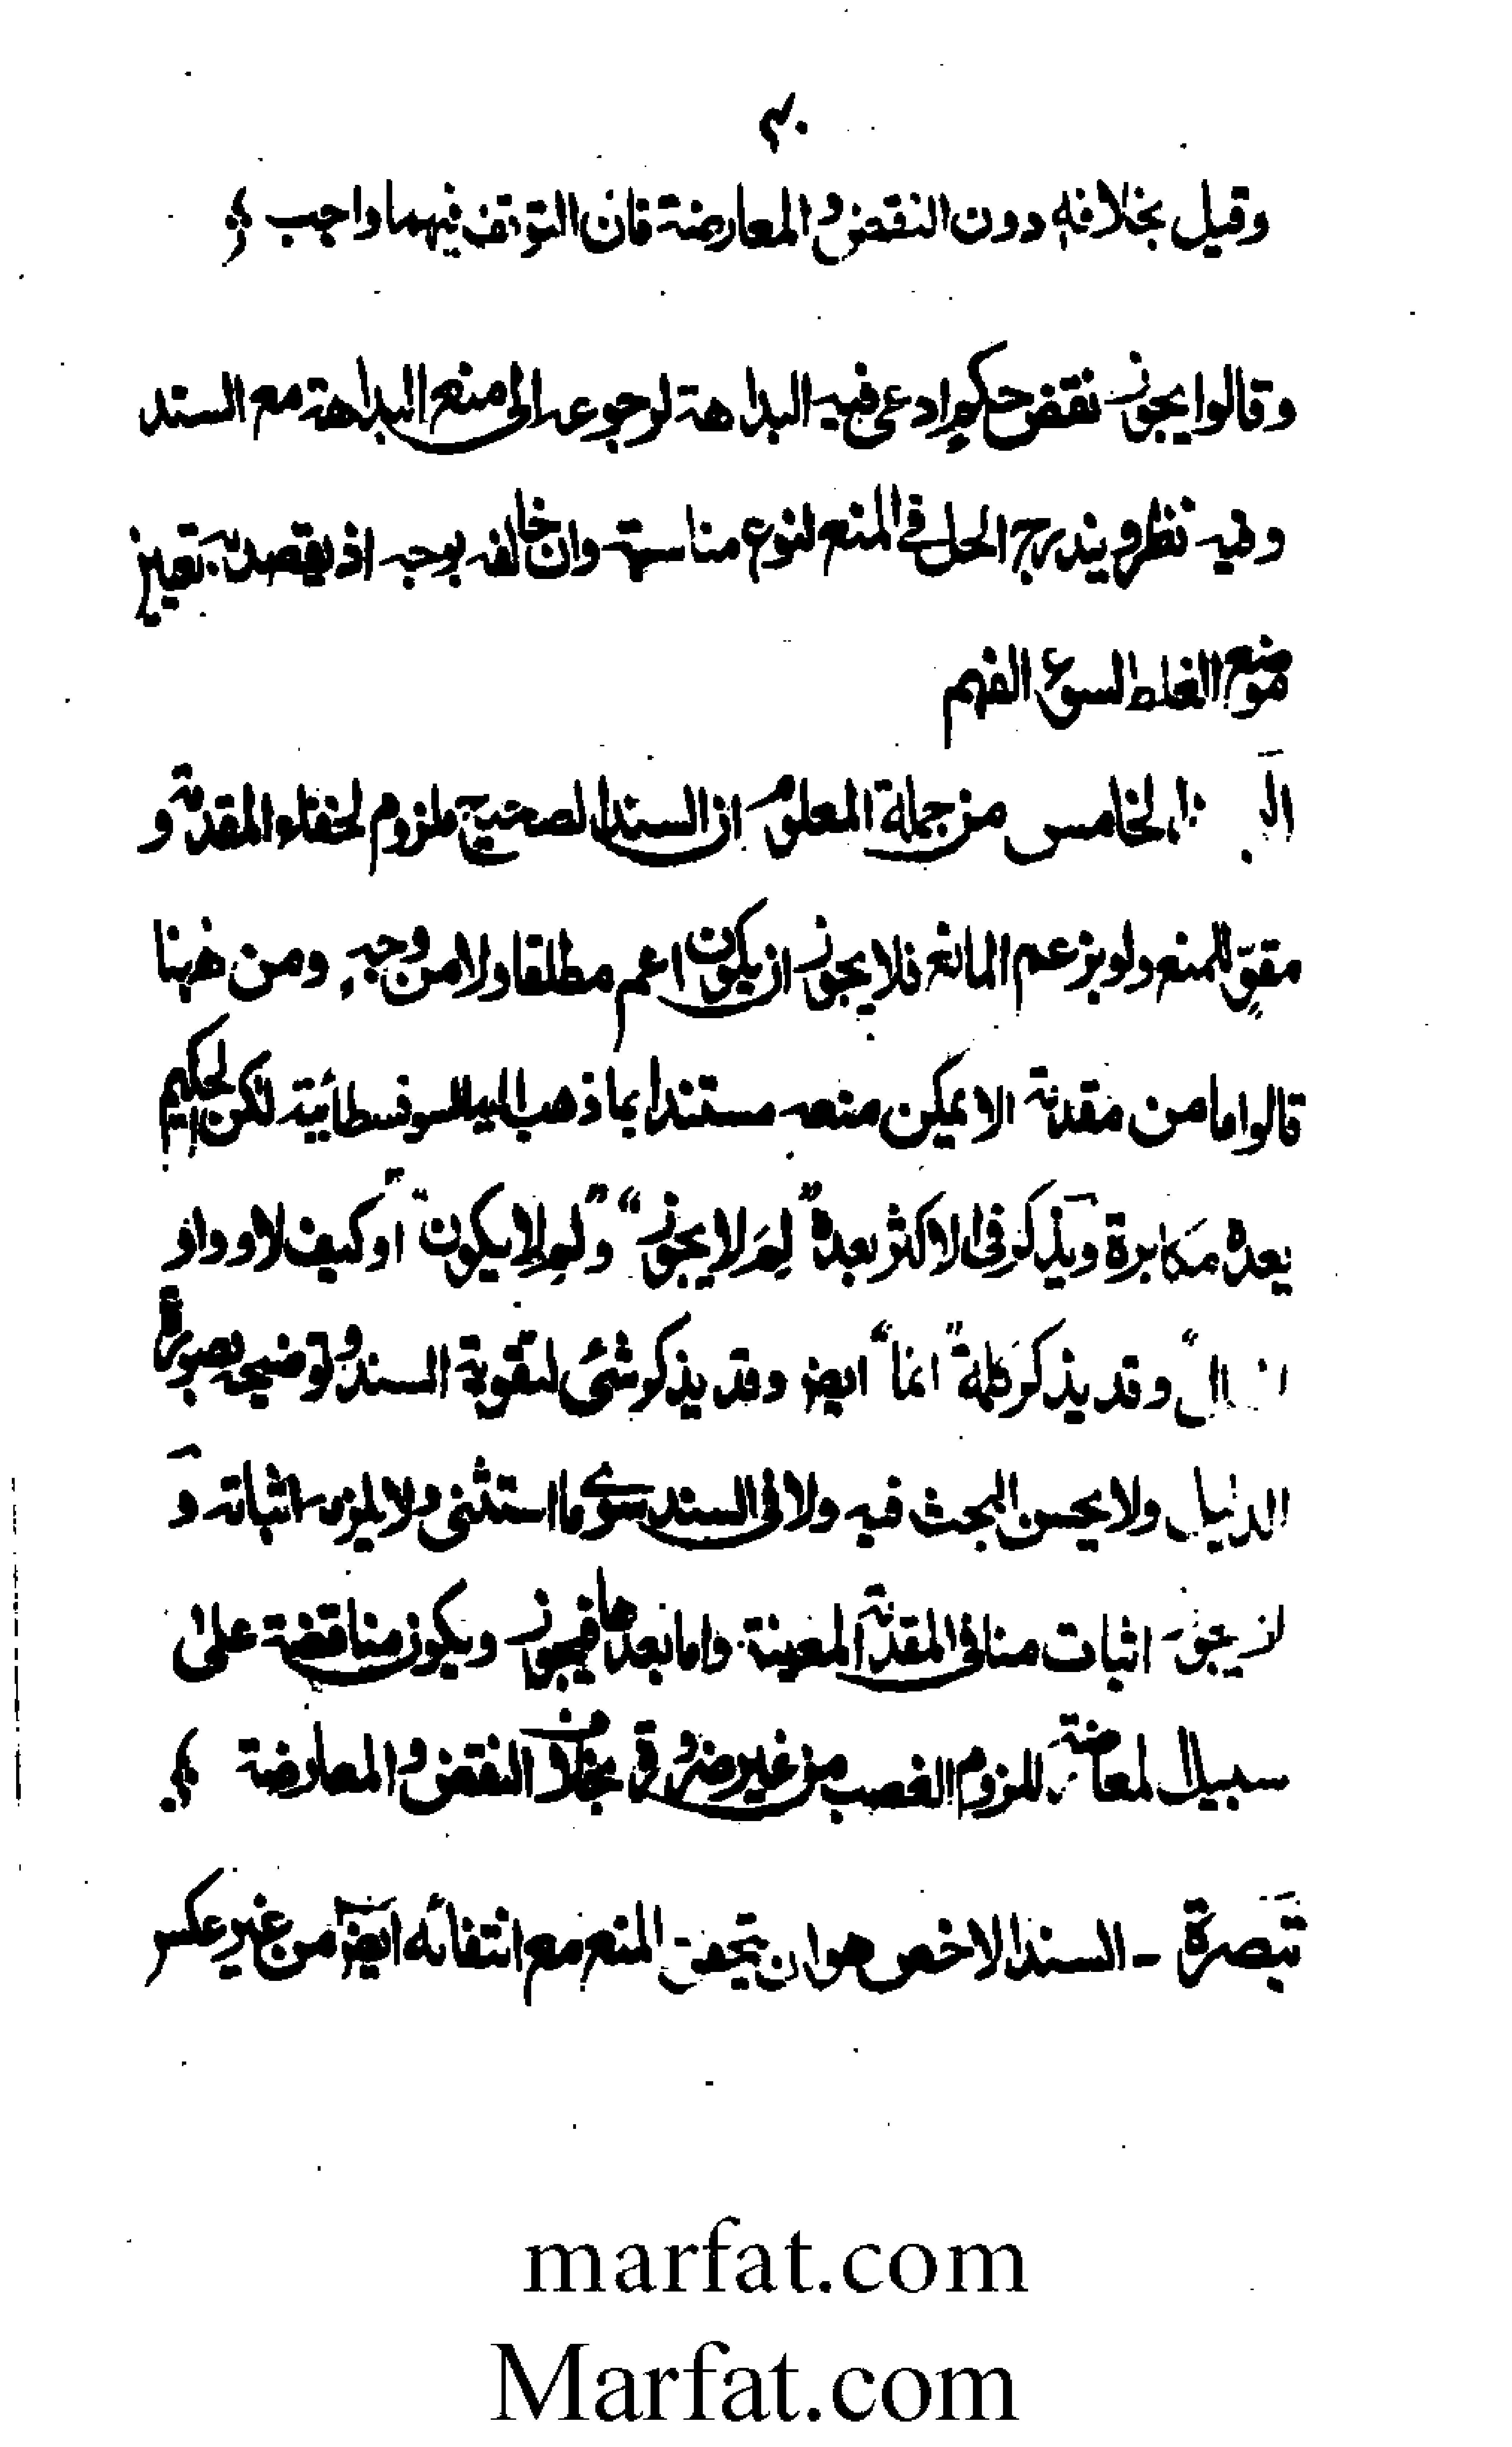 ۴۰
وقيل بخلافه دون النقض والمعارضة فان التوقف فيهما واجب
وقالوا يجوز نقض حكم ادعى فيه البداهة لرجوعه الى منع البداهة مع السند
وفيه نظر و يندرج الحل فى المنع لنوع مناسبة وان خالفه بوجه اذ يقصد به تعيين
موضع الغلط لسوء الفهم
الخامس من جملة المعلوم ان السند الصحيح ملزوم لخفاء المقدمة و
مقوٍّ للمنع ولو بزعم المانع فلا يجوز ان يكون اعم مطلقا ولا من وجهٍ ومن ههنا
قالوا ما من مقدمة الا يمكن منعه مستندا بما ذهب اليه السوفسطائية لكن الحكيم
يعده مكابرة ويذكر فى الاكثر بعده "لِمَ لا يجوز" و"لِمَ لا يكون" او كيف لا و واو
ال" وقد يذكر كلمة "انما" ايضا وقد يذكر شئى لتقوية السند وتوضيحه بصورة
الدليل ولا يحسن البحث فيه ولا فى السند سوى ما استثنى ولا يلزم اثباته و
لا يجوز اثبات منافى المقدمة المعينة واما بعدها فيجوز ويكون مناقضة على
سبيل المعارضة للزوم الغصب من غير ضرورة بخلاف النقض والمعارضة
تبصرة - السند الاخص هو ان يتحقق المنع مع انتفائه ايضا من غير عكس
marfat.com
Marfat.com